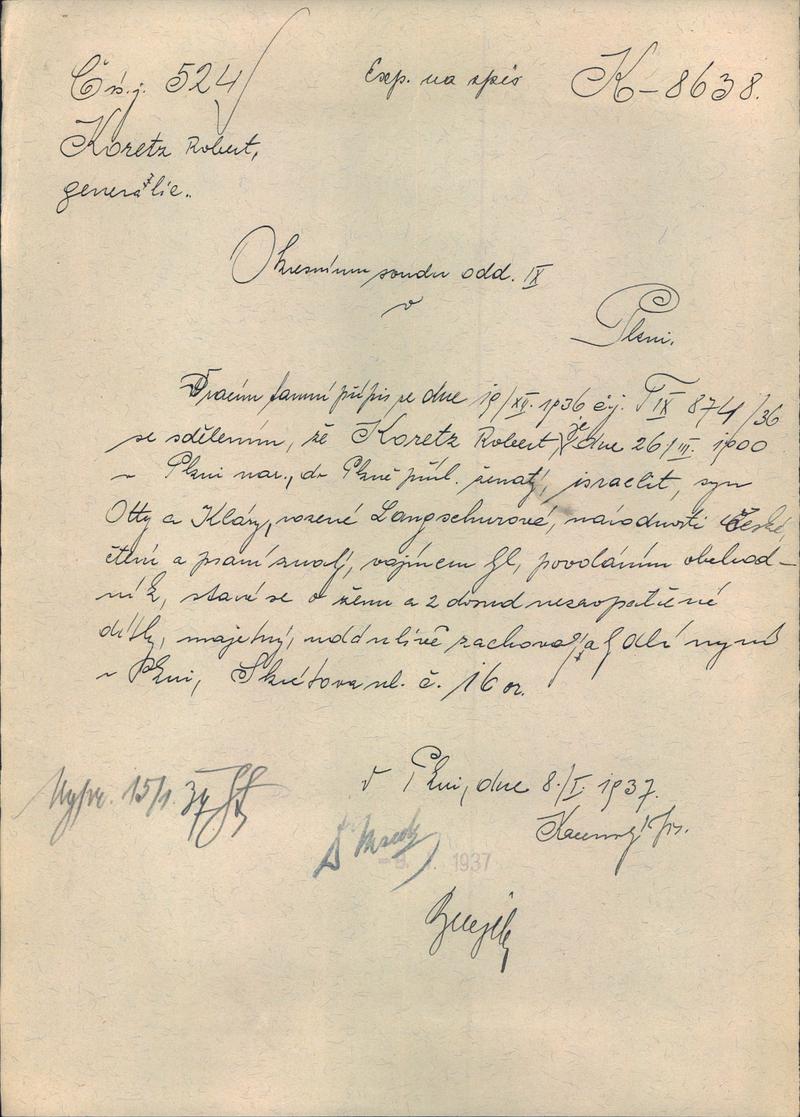 Čís.j. 524/
Exp. na spis K-8638.
Koretz Robert,
generalie.
Okresnímu soudu odd. IX
v
Plzni.
Vracím tamní přípis ze dne 19/XII. 1936 čj. T IX 874/36
se sdělením, že Koretz Robert, je dne 26/III. 1900
v Plzni nar., do Plzně přísl. ženatý, israelit, syn
Otty a Kláry, rozené Langschurové, národnosti české,
čtení a psaní znalý, vojínem byl, povoláním obchod-
ník, stará se o ženu a 2 dosud nezaopatřené
dítky, majetný, uddnlivě zachovalý a bydlí nyní
v Plzni, Škrétova ul. č. 16 or.
V Plzni, dne 8./I. 1937.
Vypr. 15/1. 37
1937